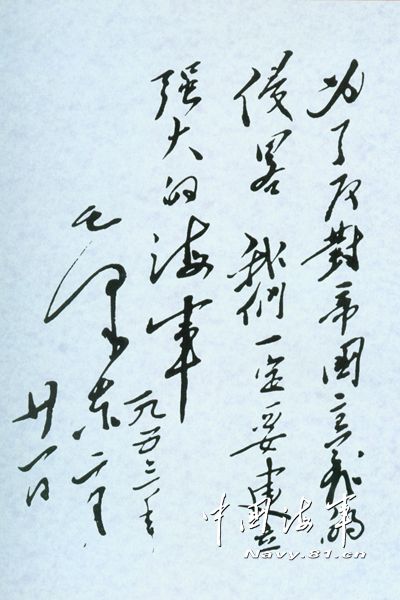 为了反對帝国主義的
侵畧 我們一定要建立
强大的海軍
一九五三年
毛泽东 二月
廿一日
中国海军
Navy.81.cn